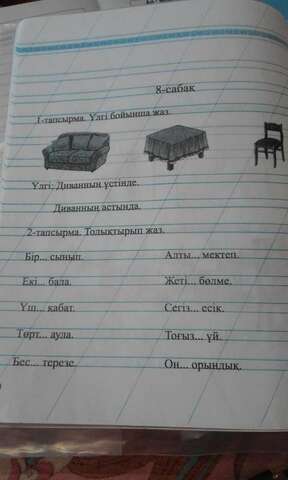 8-сабақ
1-тапсырма. Үлгі бойынша жаз.
Үлгі: Диванның үстінде.
Диванның астында.
2-тапсырма. Толықтырып жаз.
Бір... сынып. Алты... мектеп.
Екі... бала. Жеті... бөлме.
Үш... қабат. Сегіз... есік.
Төрт... аула. Тоғыз... үй.
Бес... терезе. Он... орындық.